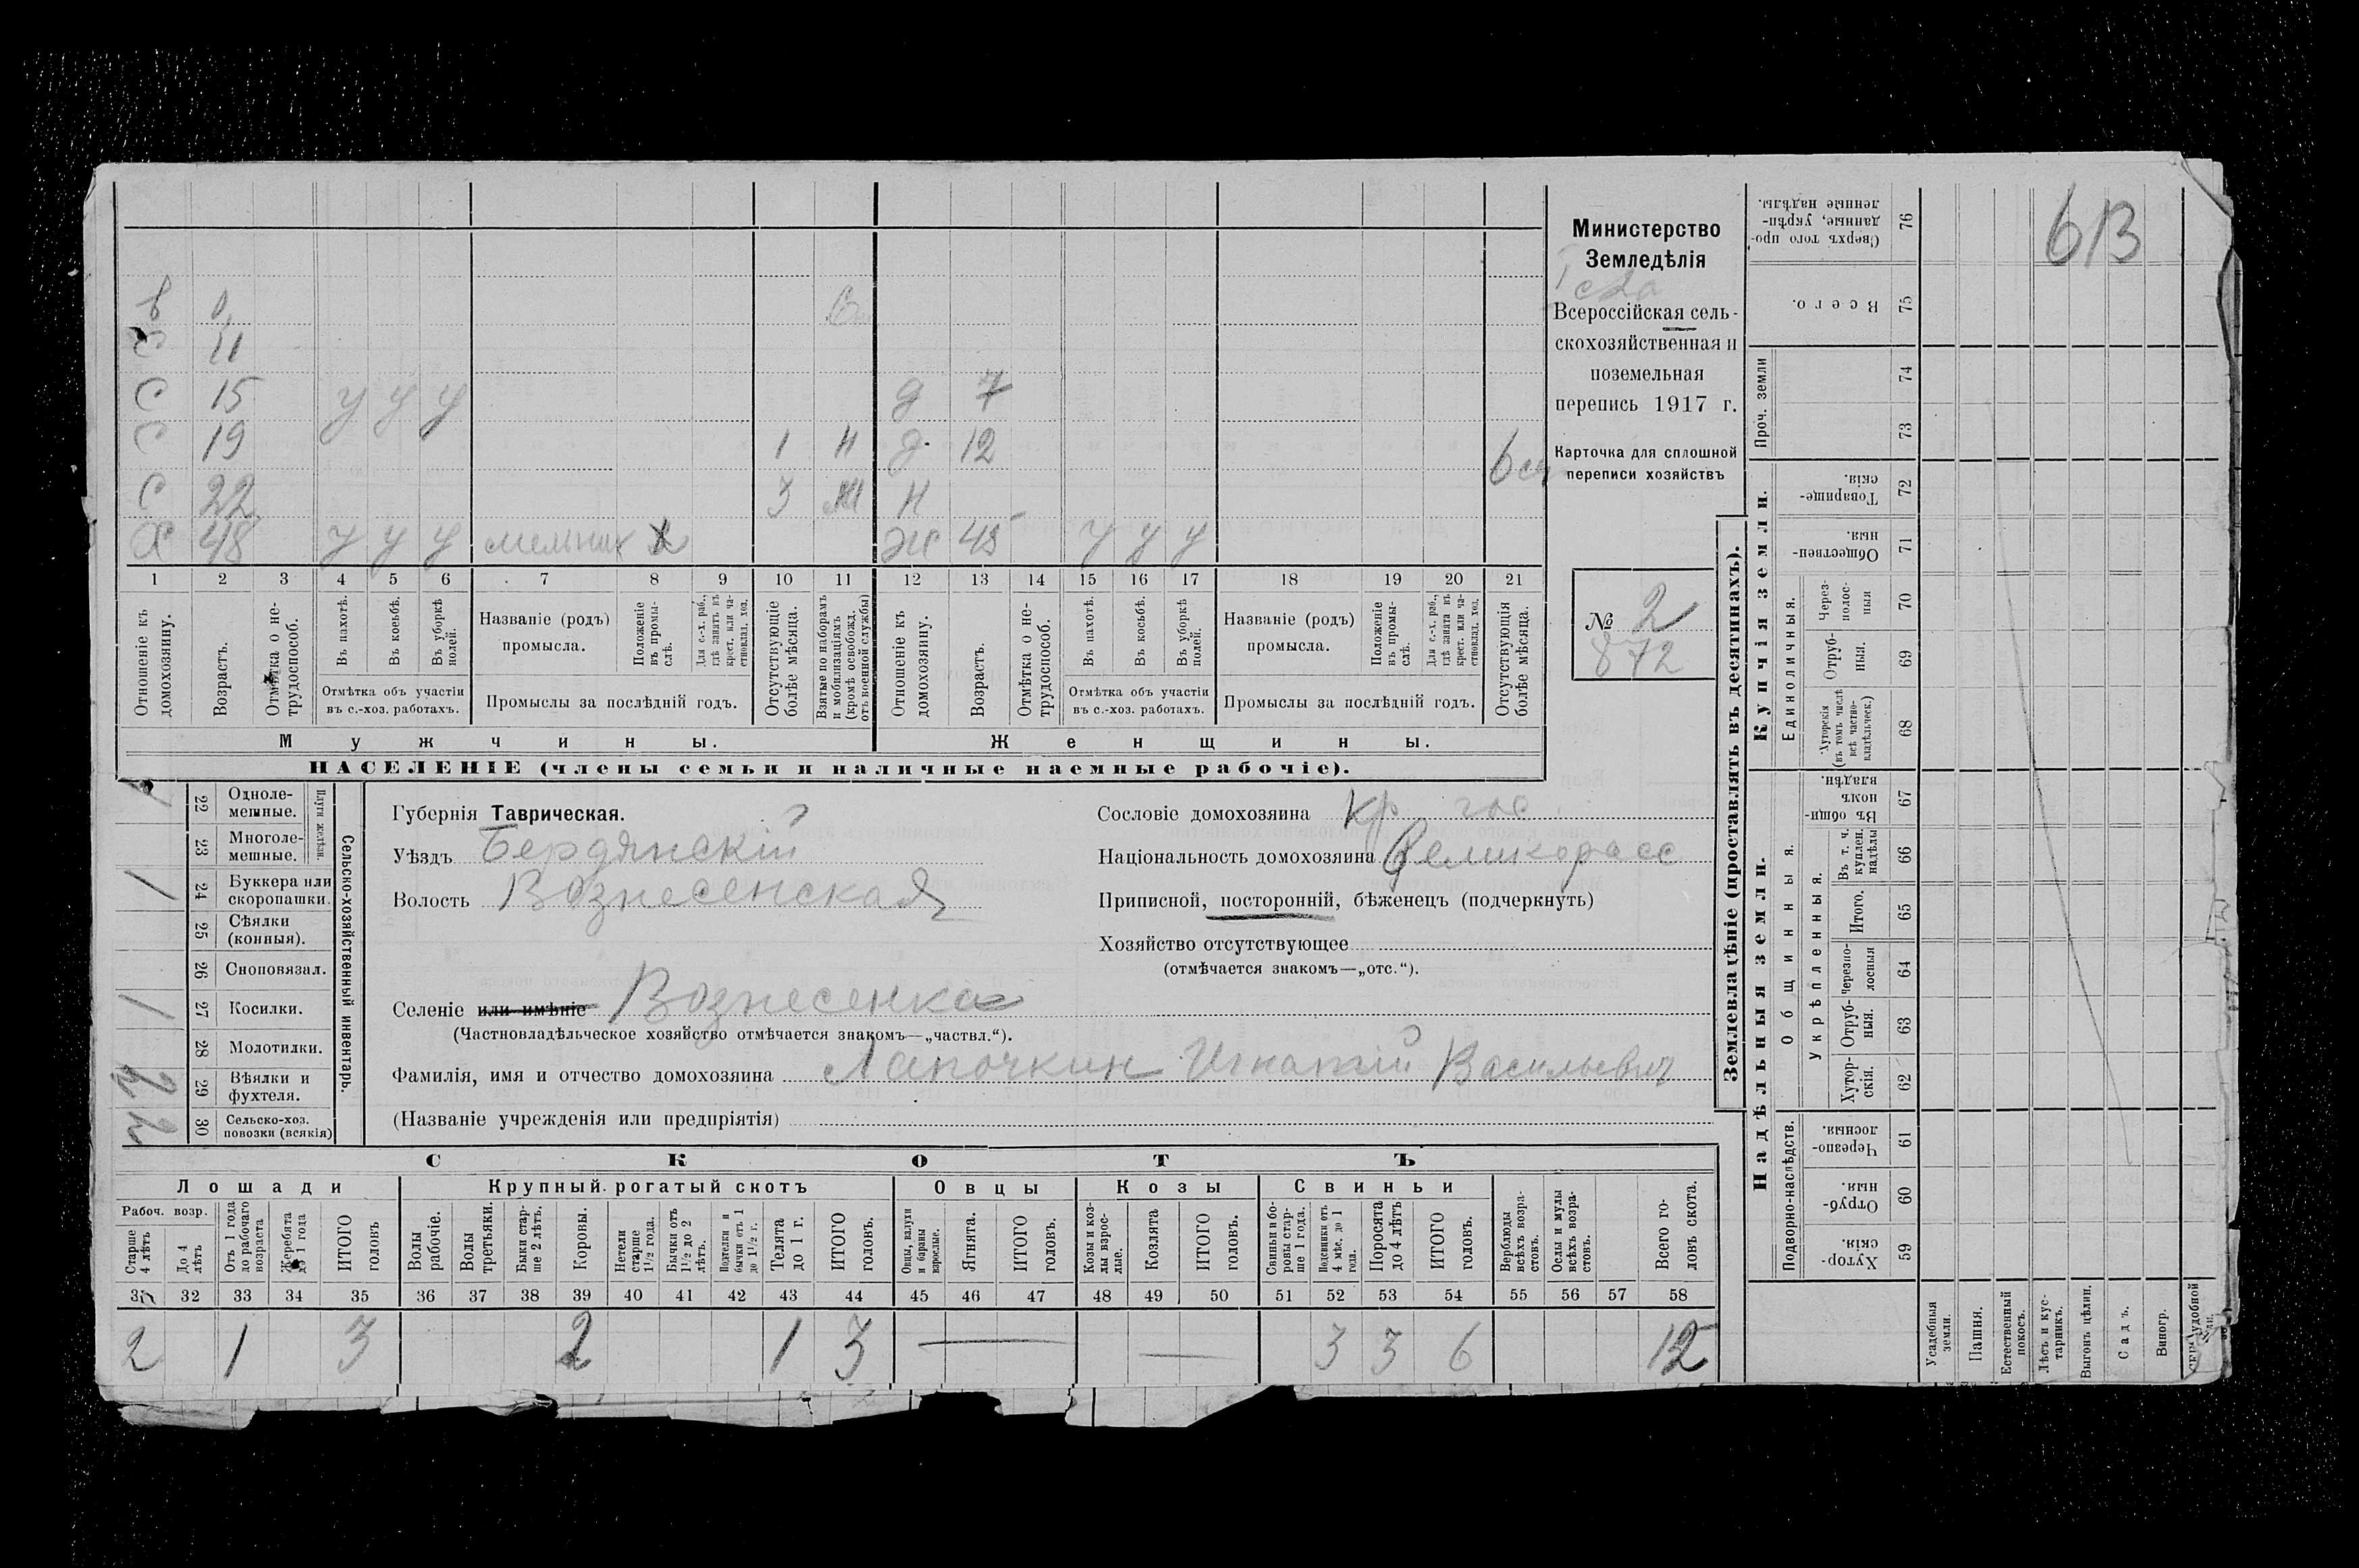 Министерство
Земледѣлія
Всероссійская сель-
скохозяйственная и
поземельная
перепись 1917 г.
Карточка для сплошной
переписи хозяйствъ
№ 2
872
613
С 11
С 15 у у у д 7
С 19 1 Н д 12
С 22 3 Н
Х 48 у у у мельник Х Ж 45 у у у
1 2 3 4 5 6 7 8 9 10 11 12 13 14 15 16 17 18 19 20 21
Отношеніе къ домохозяину.
Возрастъ.
Отмѣтка о не-трудоспособ.
Въ пахотѣ.
Въ косьбѣ.
Въ уборкѣ полей.
Отмѣтка объ участіи въ с.-хоз. работахъ.
Названіе (родъ) промысла.
Положеніе въ промы-слѣ.
Для с.-х. раб., гдѣ занятъ въ крест. или ча-стновлад. хоз.
Промыслы за послѣдній годъ.
Отсутствующіе болѣе мѣсяца.
Взятые по наборамъ и мобилизаціямъ (кромѣ освобожд. отъ военной службы)
Отношеніе къ домохозяину.
Возрастъ.
Отмѣтка о не-трудоспособ.
Въ пахотѣ.
Въ косьбѣ.
Въ уборкѣ полей.
Отмѣтка объ участіи въ с.-хоз. работахъ.
Названіе (родъ) промысла.
Положеніе въ промы-слѣ.
Для с.-х. раб., гдѣ занята въ крест. или ча-стновлад. хоз.
Промыслы за послѣдній годъ.
Отсутствующія болѣе мѣсяца.
Мужчины. Женщины.
НАСЕЛЕНІЕ (члены семьи и наличные наемные рабочіе).
Сельско-хозяйственный инвентарь.
Плуги желѣзн.
22 Одноле-мешные.
23 Многоле-мешные.
24 Буккера или скоропашки. 1
25 Сѣялки (конныя).
26 Сноповязал.
27 Косилки. 1
28 Молотилки.
29 Вѣялки и фухтеля.
30 Сельско-хоз. повозки (всякія)
Губернія Таврическая.
Уѣздъ Бердянскій
Волость Вознесенская
Селеніе или имѣніе Вознесенка
(Частновладѣльческое хозяйство отмѣчается знакомъ—„частвл.“).
Фамилія, имя и отчество домохозяина Лапочкин Игнатій Васильевич
(Названіе учрежденія или предпріятія)
Сословіе домохозяина кр гос.
Національность домохозяина Великоросс
Приписной, посторонній, бѣженецъ (подчеркнуть)
Хозяйство отсутствующее
(отмѣчается знакомъ—„отс.“).
СКОТЪ
Лошади Крупный рогатый скотъ Овцы Козы Свиньи
Рабоч. возр.
Старше 4 лѣтъ
До 4 лѣтъ
Отъ 1 года до рабочаго возраста
Жеребята до 1 года
ИТОГО головъ
Волы рабочіе.
Волы третьяки.
Быки стар-ше 2 лѣтъ.
Коровы.
Нетели старше 1½ года.
Бычки отъ 1½ до 2 лѣтъ.
Подтелки и бычки отъ 1 до 1½ г.
Телята до 1 г.
ИТОГО головъ.
Овцы, валухи и бараны взрослые.
Ягнята.
ИТОГО головъ.
Козы и коз-лы взрос-лые.
Козлята
ИТОГО головъ.
Свиньи и бо-ровы стар-ше 1 года.
Подсвинки отъ 4 мѣс. до 1 года.
Поросята до 4 лѣтъ
ИТОГО головъ.
Верблюды всѣхъ возра-стовъ.
Ослы и мулы всѣхъ возра-стовъ.
Всего го-ловъ скота.
31 32 33 34 35 36 37 38 39 40 41 42 43 44 45 46 47 48 49 50 51 52 53 54 55 56 57 58
2 1 3 2 1 3 — — 3 3 6 12
Землевладѣніе (проставлять въ десятинахъ).
Надѣльныя земли. Купчія земли.
Подворно-наслѣдств.
Общинныя.
Укрѣпленныя.
Единоличныя.
Проч. земли
Хутор-скія. 59
Отруб-ныя. 60
Черезпо-лосныя. 61
Хутор-скія. 62
Отруб-ныя. 63
Черезпо-лосныя 64
Итого. 65
Въ т. ч. куплен. надѣлы 66
Въ общин-номъ владѣн. 67
Хуторскія (въ томъ числѣ всѣ частно-владѣльческ.) 68
Отруб-ныя. 69
Через-полос-ныя 70
Обществен-ныя. 71
Товарище-скія. 72
73
74
Всего. 75
(Сверхъ того про-данные, укрѣп-ленные надѣлы. 76
Усадебныя земли.
Пашня.
Естественный покосъ.
Лѣсъ и кус-тарникъ.
Выгонъ цѣлин.
Садъ.
Виногр.